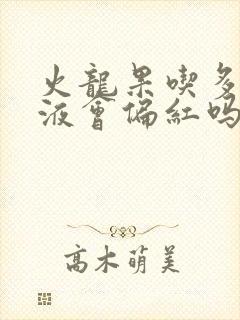 火龍果喫多
液會偏紅嗎
高木萌美